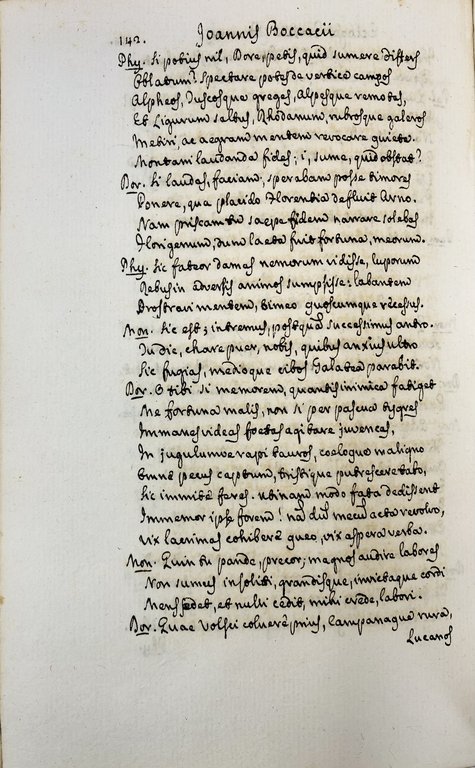 142. Joannis Boccacii
Phy. Si potius nil, Dore, petis, quid sumere differs
Oblatum? Spectare potes de vertice campos
Alpheos, Tuscosque greges, Alpesque remotas,
Et Ligurum saltus, Rhodanum, rubrosque galeros
Metiri, ac aegram mentem revocare quiete.
Montani laudanda fides; i, sume, quid obstat?
Dor. Si laudas, faciam; sperabam posse timores
Ponere, qua placido Florentia defluit Arno.
Nam priscam tu saepe fidem narrare solebas
Florigenum, dum laeta fuit fortuna, meorum.
Phy. Sic fateor damas nemorum vidisse, luporum
Rebus in adversis animos sumpsisse: labantem
Prostravi mentem, timeo quoscumque recessus.
Mon. Sic est; intremus, postquã successimus antro.
Tu dic, chare puer, nobis, quibus anxius ultro
Sic fugias, medioque cibos Galatea parabit.
Dor. O tibi si memorem, quantis inimica fatiget
Me fortuna malis, non si per pascua tygres
Immanes videas foetas agitare juvencas,
In jugulumve rapi tauros, coeloque maligno
Omne pecus captum, tristique putrescere tabo,
Sic immitê feras. utinam modo fata dedissent
Immemor ipse forem! nã dũ mecũ acta revolvo,
Vix lacrimas cohibere queo, vix aspera verba.
Mon. Quin tu pande, precor; magnos audire labores
Non sumus insoliti, grandisque, invictaque cordi
Mens sedet, et nulli cedit, mihi crede, labori.
Dor. Quae Volsci coluerê prius, Campanaque rura,
Lucanos